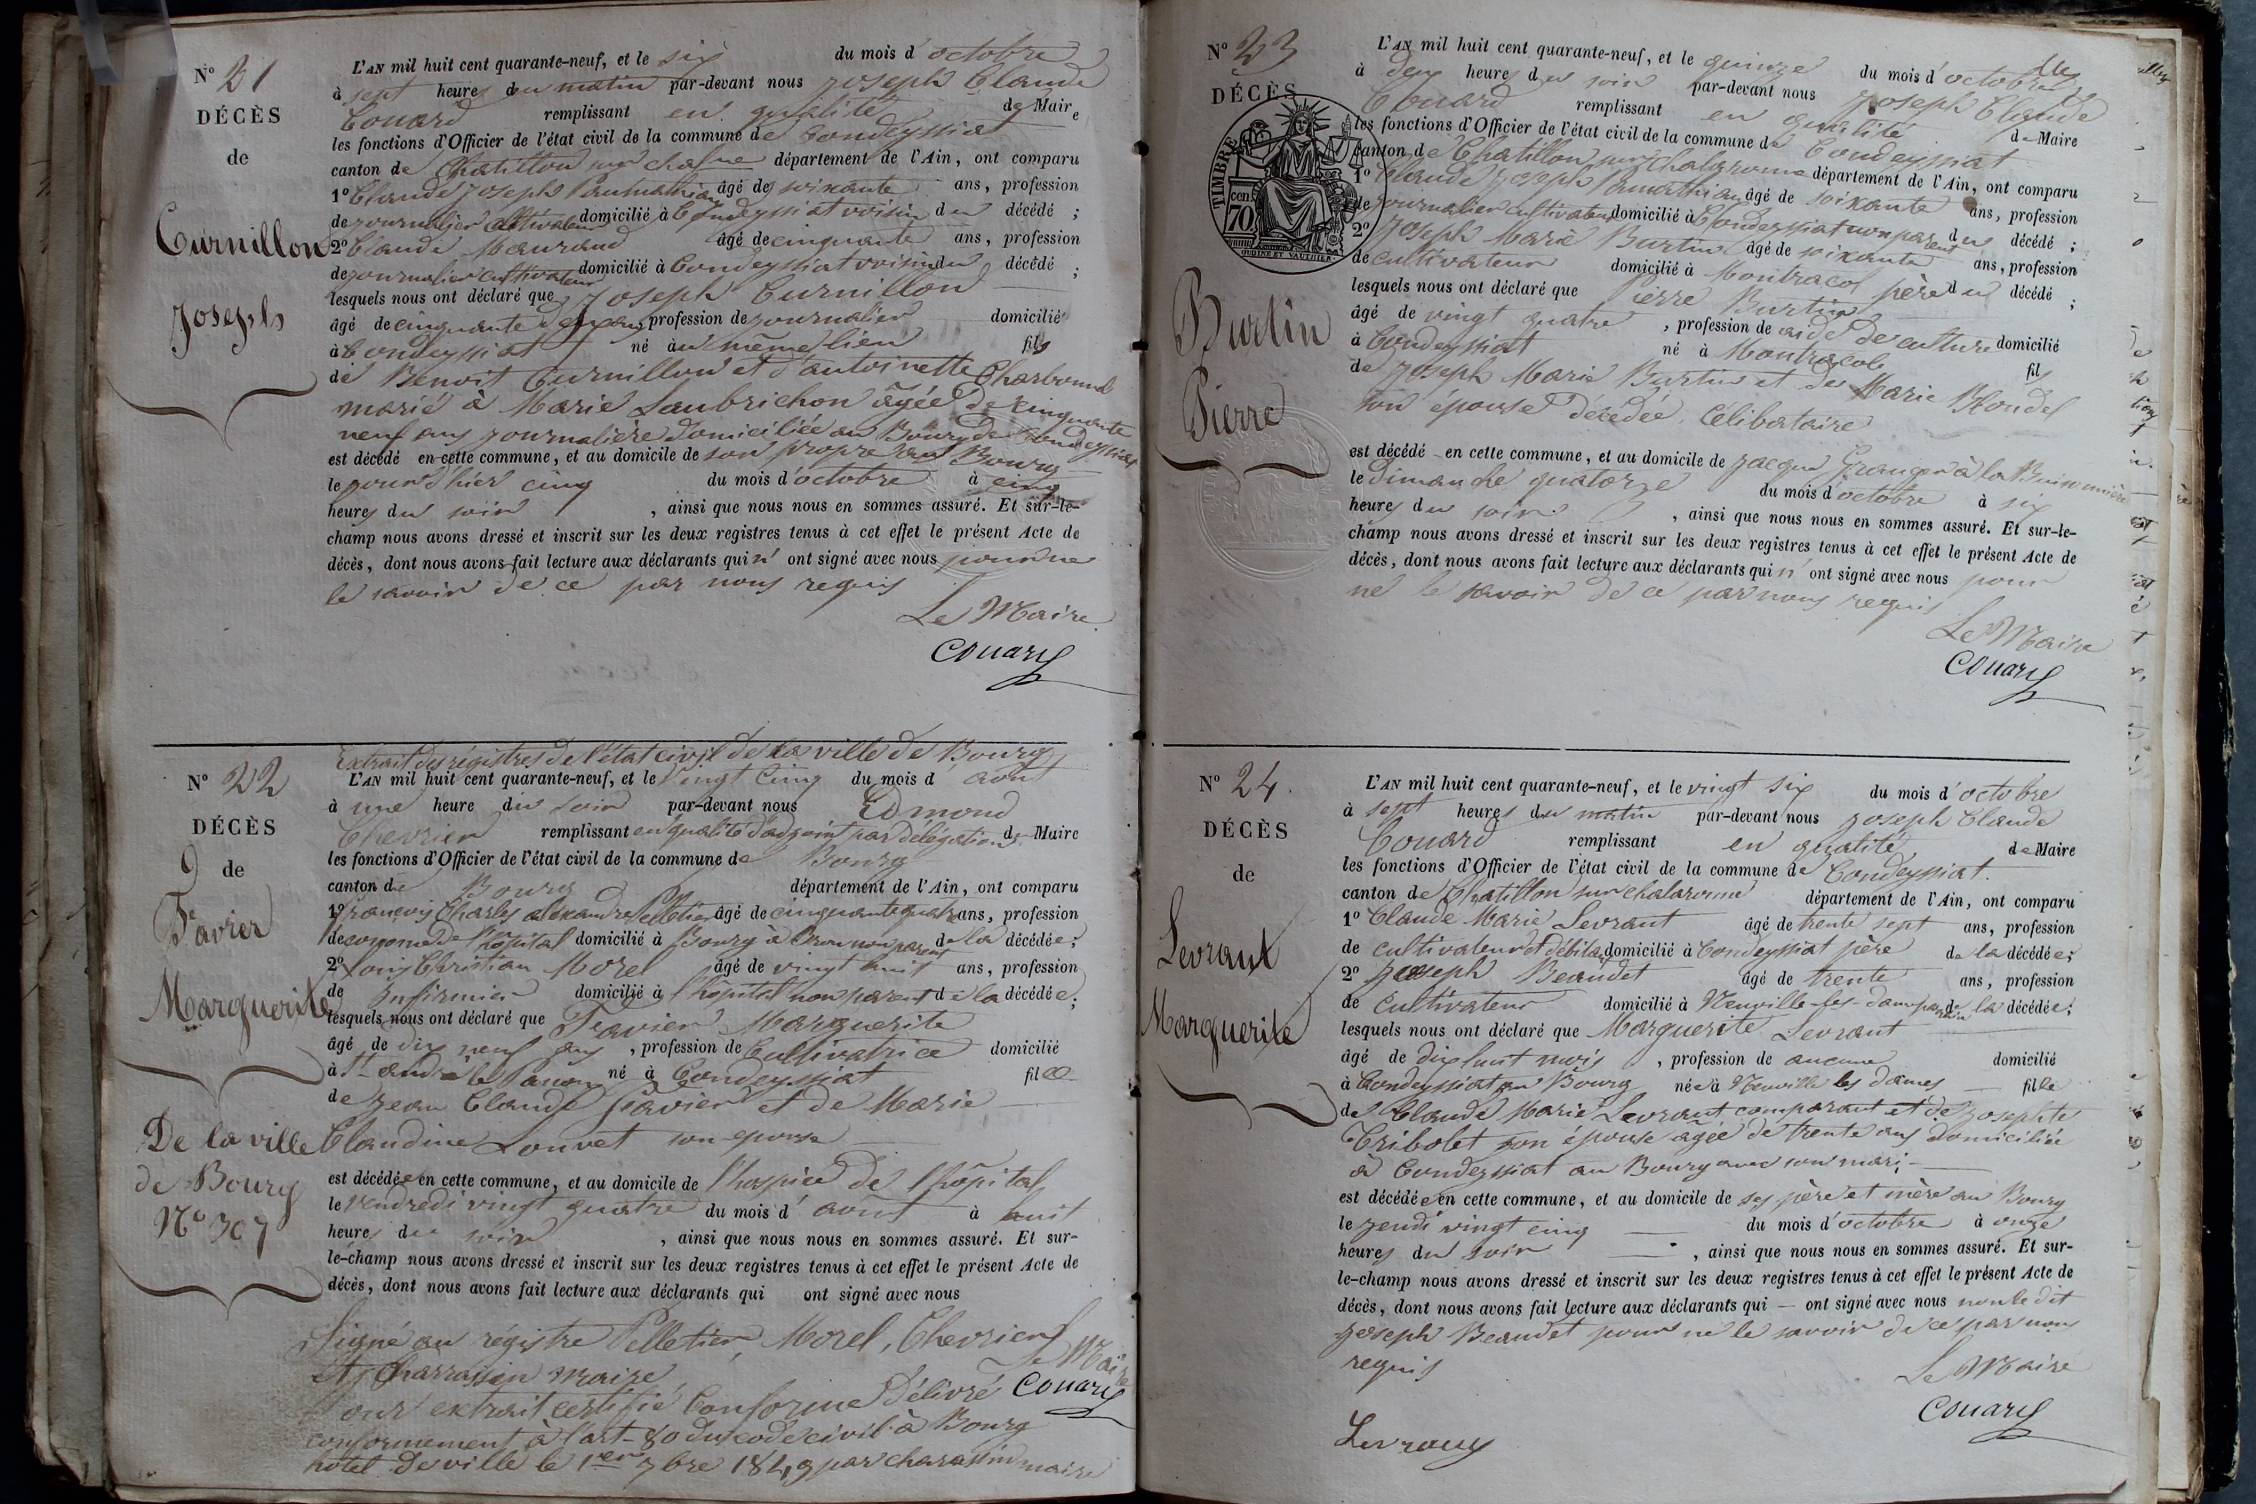 N° 21
DÉCÈS
de
Curnillon
Joseph
L'AN mil huit cent quarante-neuf, et le six du mois d'octobre
à sept heures du matin par-devant nous Joseph Claude
Couard remplissant en qualité de Maire
les fonctions d'Officier de l'état civil de la commune de Condeyssiat
canton de Chatillon sur chalne département de l'Ain, ont comparu
1° Claude Joseph âgé de soixante ans, profession
de journalier cultivateur domicilié à Condeyssiat voisin du décédé ;
2° Claude Mauraud âgé de cinquante ans, profession
de journalier cultivateur domicilié à Condeyssiat voisin du décédé ;
lesquels nous ont déclaré que Joseph Curnillon
âgé de cinquante deux ans, profession de journalier domicilié
à Condeyssiat né au même lieu fils
de Benoit Curnillon et d'antoinette Charbonnel
marié à Marie Laubrichon âgée de cinquante
neuf ans journalière domiciliée au Bourg de Condeyssiat
est décédé en cette commune, et au domicile de son propre au Bourg
le jour d'hier cinq du mois d'octobre à cinq
heures du soir , ainsi que nous nous en sommes assuré. Et sur-le-
champ nous avons dressé et inscrit sur les deux registres tenus à cet effet le présent Acte de
décès, dont nous avons fait lecture aux déclarants qui n' ont signé avec nous pour ne
le savoir de ce par nous requis
Le Maire
Couard
N° 22
DÉCÈS
de
Favier
Marguerite
De la ville
de Bourg
N° 307
Extrait des régistres de l'état civil de la ville de Bourg
L'AN mil huit cent quarante-neuf, et le Vingt Cinq du mois d' août
à une heure du soir par-devant nous Edmond
Chevrier remplissant en qualité d'adjoint par délégation de Maire
les fonctions d'Officier de l'état civil de la commune de Bourg
canton de Bourg département de l'Ain, ont comparu
1° françois Charles alexandre Pelletier âgé de cinquante quatre ans, profession
de econome de l'hôpital domicilié à Bourg à Brou non parent de la décédée;
2° Louis Christian Morel âgé de vingt huit ans, profession
de Infirmier domicilié à l'hôpital non parent de la décédée;
lesquels nous ont déclaré que Favier Marguerite
âgé de dix neuf ans , profession de Cultivatrice domicilié
à St andré le Panoux né à Condeyssiat fille
de Jean Claude favier et de Marie
Claudine Louvet son épouse
est décédée en cette commune, et au domicile de l'hospice de l'hôpital
le Vendredi vingt quatre du mois d' août à huit
heures du soir , ainsi que nous nous en sommes assuré. Et sur-
le-champ nous avons dressé et inscrit sur les deux registres tenus à cet effet le présent Acte de
décès, dont nous avons fait lecture aux déclarants qui ont signé avec nous
Signé au régistre Pelletier, Morel, Chevrier
Et Charrassin maire Le Maire
Pour extrait certifié Conforme Délivré Couard
conformement à l'art. 80 du code civil à Bourg
hôtel de ville le 1er 7bre 1849 par charassin maire
N° 23
DÉCÈS
TIMBRE
70 cen.
OUDINÉ ET VAUTHIER
Burtin
Pierre
L'AN mil huit cent quarante-neuf, et le quinze du mois d'octobre
à deux heures du soir par-devant nous Joseph Claude
Couard remplissant en qualité de Maire
les fonctions d'Officier de l'état civil de la commune de Condeyssiat
canton de Chatillon sur chalaronne département de l'Ain, ont comparu
1° Claude Joseph âgé de soixante ans, profession
de journalier cultivateur domicilié à Condeyssiat non parent du décédé ;
2° Joseph Marie Burtin âgé de soixante ans, profession
de cultivateur domicilié à Montracol père du décédé ;
lesquels nous ont déclaré que Pierre Burtin
âgé de vingt quatre , profession de aide de culture domicilié
à Condeyssiat né à Montracol fils
de Joseph Marie Burtin et de Marie Blondel
son épouse décédée, célibataire
est décédé en cette commune, et au domicile de Jacques Granger à la
le Dimanche quatorze du mois d'octobre à six
heures du soir , ainsi que nous nous en sommes assuré. Et sur-le-
champ nous avons dressé et inscrit sur les deux registres tenus à cet effet le présent Acte de
décès, dont nous avons fait lecture aux déclarants qui n' ont signé avec nous pour
ne le savoir de ce par nous requis
Le Maire
Couard
N° 24.
DÉCÈS
de
Levraut
Marguerite
L'AN mil huit cent quarante-neuf, et le vingt six du mois d'octobre
à sept heures du matin par-devant nous Joseph Claude
Couard remplissant en qualité de Maire
les fonctions d'Officier de l'état civil de la commune de Condeyssiat.
canton de Chatillon sur chalaronne département de l'Ain, ont comparu
1° Claude Marie Levraut âgé de trente sept ans, profession
de cultivateur et domicilié à Condeyssiat père de la décédée;
2° Joseph Beaudet âgé de trente ans, profession
de cultivateur domicilié à Neuville les dames parrain de la décédée;
lesquels nous ont déclaré que Marguerite Levraut
âgé de dix huit mois , profession de aucune domicilié
à Condeyssiat au Bourg née à Neuville les dames fille
de Claude Marie Levraut comparant et de Josephte
Tribolet son épouse agée de trente ans domiciliée
à Condeyssiat au Bourg avec son mari
est décédée en cette commune, et au domicile de ses père et mère au Bourg
le jeudi vingt cinq du mois d'octobre à onze
heures du soir , ainsi que nous nous en sommes assuré. Et sur-
le-champ nous avons dressé et inscrit sur les deux registres tenus à cet effet le présent Acte de
décès, dont nous avons fait lecture aux déclarants qui — ont signé avec nous non le dit
Joseph Beaudet pour ne le savoir de ce par nous
requis
Le Maire
Couard
Levraut